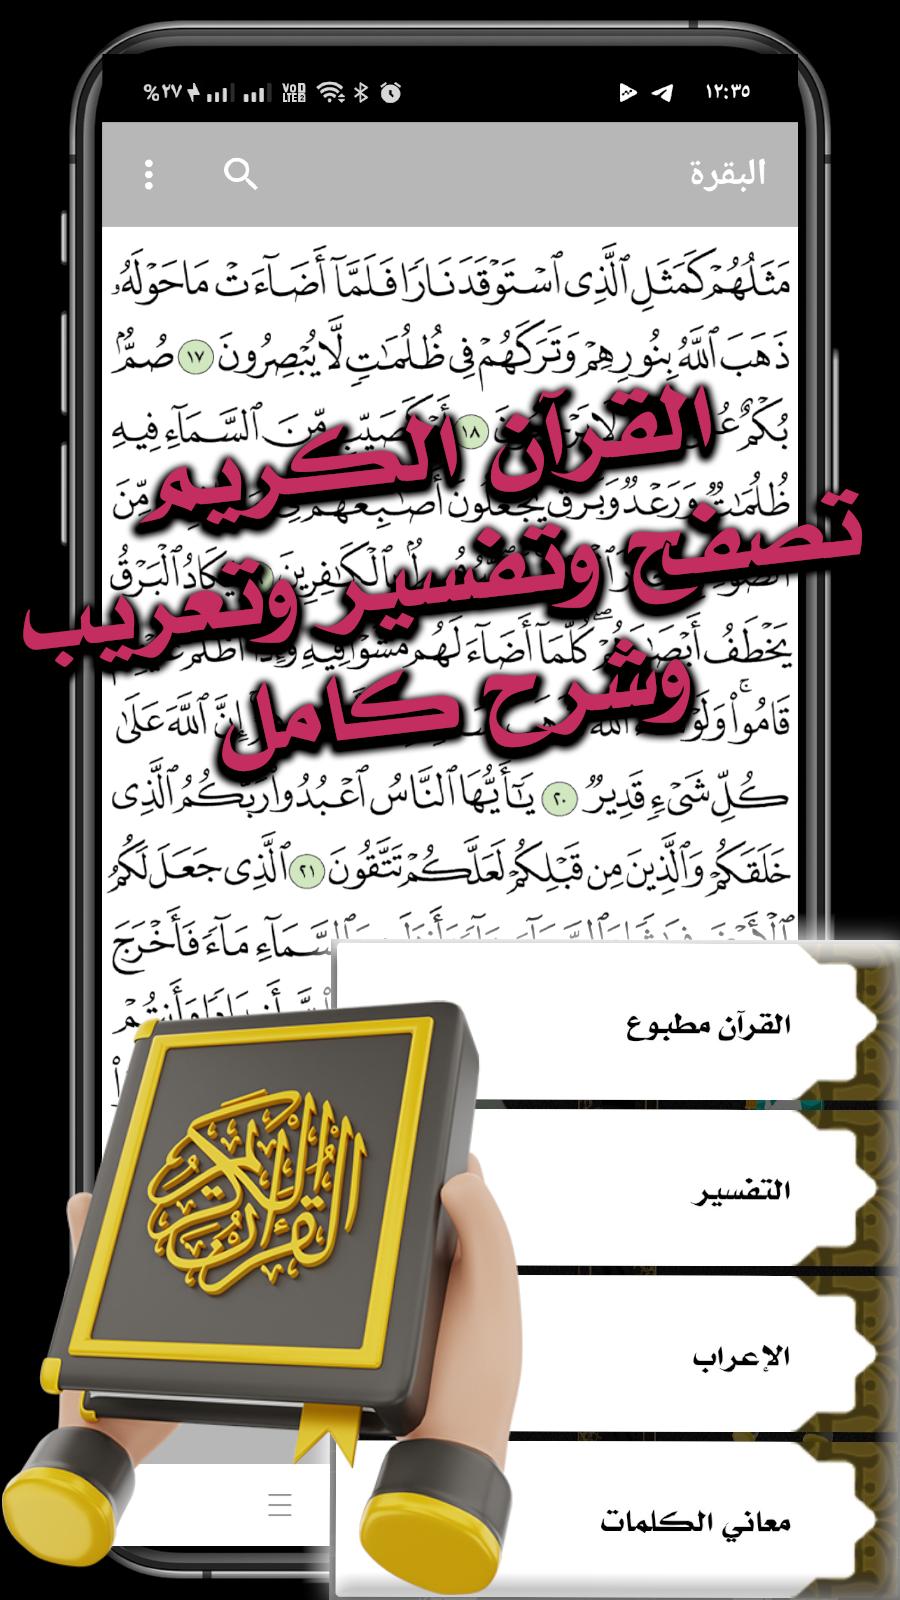 ١٢:٣٥
%٢٧
VoD LTE2
البقرة
مَثَلُهُمْ كَمَثَلِ ٱلَّذِى ٱسْتَوْقَدَ نَارًا فَلَمَّآ أَضَآءَتْ مَا حَوْلَهُۥ
ذَهَبَ ٱللَّهُ بِنُورِهِمْ وَتَرَكَهُمْ فِى ظُلُمَٰتٍ لَّا يُبْصِرُونَ ١٧ صُمٌّۢ
بُكْمٌ ١٨ كَصَيِّبٍ مِّنَ ٱلسَّمَآءِ فِيهِ
القرآن الكريم
ظُلُمَٰتٌ وَرَعْدٌ وَبَرْقٌ يَجْعَلُونَ أَصَٰبِعَهُمْ مِّنَ
تصفح وتفسير وتعريب
بِٱلْكَٰفِرِينَ يَكَادُ ٱلْبَرْقُ
يَخْطَفُ كُلَّمَآ أَضَآءَ لَهُم مَّشَوْا۟ فِيهِ
وشرح كامل
قَامُوا۟ وَلَوْ إِنَّ ٱللَّهَ عَلَىٰ
كُلِّ شَىْءٍ قَدِيرٌ ٢٠ يَٰٓأَيُّهَا ٱلنَّاسُ ٱعْبُدُوا۟ رَبَّكُمُ ٱلَّذِى
خَلَقَكُمْ وَٱلَّذِينَ مِن قَبْلِكُمْ لَعَلَّكُمْ تَتَّقُونَ ٢١ ٱلَّذِى جَعَلَ لَكُمُ
ٱلسَّمَآءِ مَآءً فَأَخْرَجَ
وَأَنتُمْ
القرآن مطبوع
التفسير
الإعراب
معاني الكلمات
القرآن الكريم